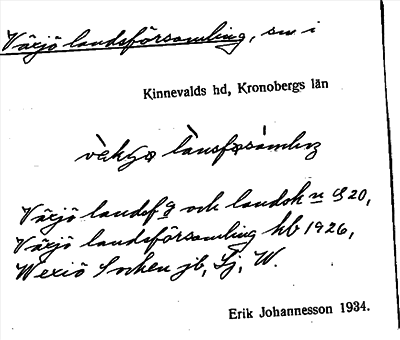 Växjö landsförsamling, sn i
Kinnevalds hd, Kronobergs län
Växjö landsf g och landsk n S 20,
Växjö landsförsamling hb 1926,
Wexiö Socken jb, Lj, W.
Erik Johannesson 1934.